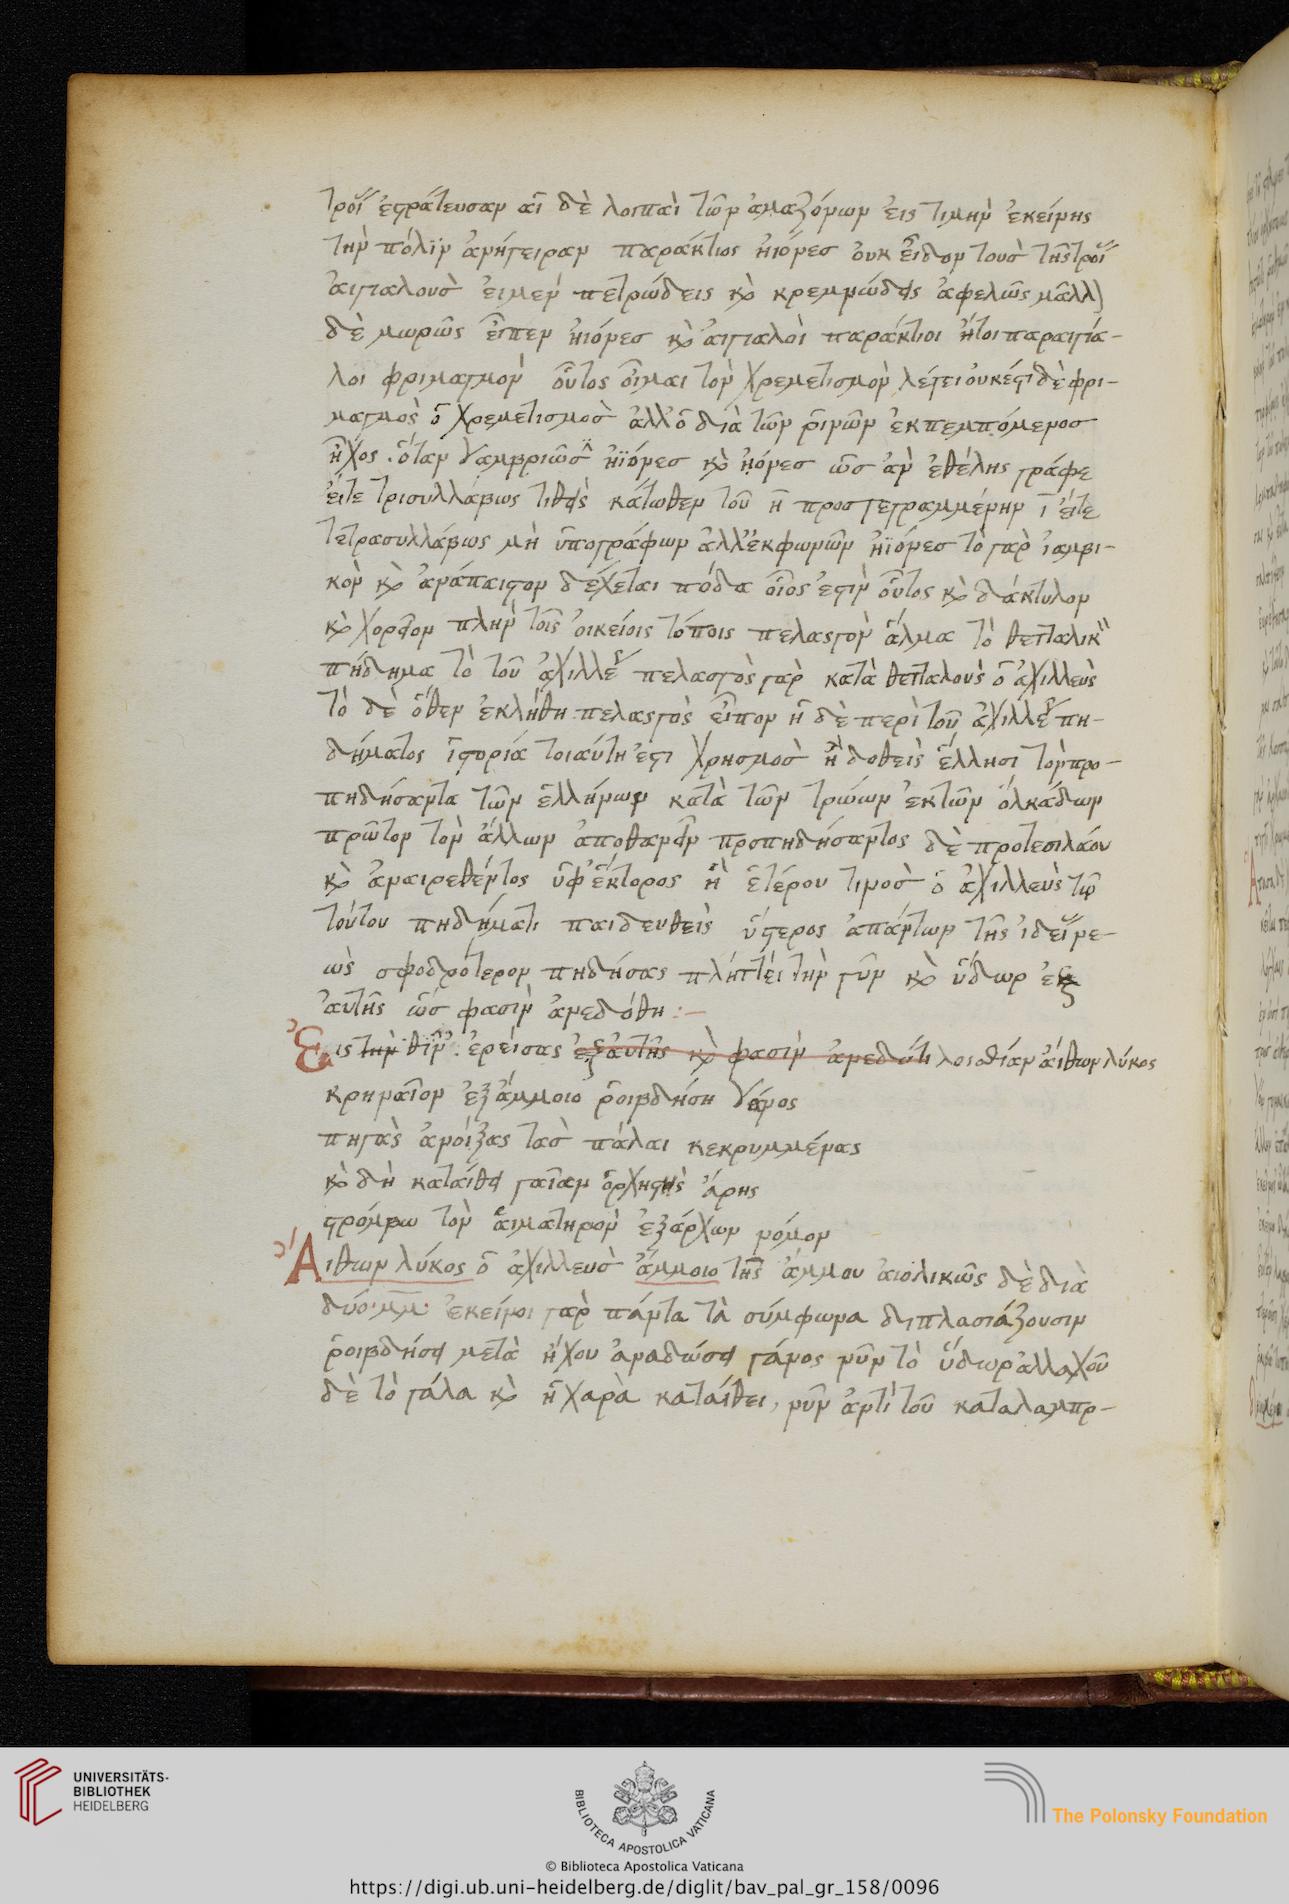 τροί ἐστράτευσαν αἱ δὲ λοιπαὶ τῶν ἀμαζόνων εἰς τιμὴν ἐκείνης
τὴν πόλϊν ἀνήγειραν παράκτιος ἠϊόνεσ οὐκ εἶδον τοὺσ τῆς τροί
αἰγιαλοὺσ εἰμεν πετρώδεις κὸ κρεμνώδεις ἀφελῶς μᾶλλ
δὲ μωρῶς εἶπεν ἠιόνεσ κὸ αἰγιαλοὶ παράκτιοι ἤτοι παραιγιά-
λοι φριμαγμὸν οὗτος οἶμαι τὸν χρεμετισμὸν λέγει οὐκέστι δὲ φρι-
μαγμὸς ὁ χρεμετισμὸσ ἀλλ ὁ διὰ τῶν ῥινῶν ἐκπεμπόμενοσ
ἦχος. ὅταν γαμβριῶσ ἠϊόνεσ κὸ ἠόνεσ ὡσ ἂν ἐθέλης γράφε
εἴτε τρισυλλάβως τιθεὶς κάτωθεν τοῦ η προσγεγραμμένην ι εἴτε
τετρασυλλάβως μὴ ὑπογράφων ἀλλ' ἐκφωνῶν ἠϊόνεσ τὸ γὰρ ἰαμβι-
κὸν κὸ ἀνάπαιστον δέχεται πόδα οἷος ἐστὶν οὗτος κὸ δάκτυλον
κὸ χορεῖον πλὴν τοῖς οἰκείοις τόποις πελασγὸν ἅλμα τὸ θετταλικὸν
πήδημα τὸ τοῦ ἀχιλλέως πελασγὸς γὰρ κατὰ θετταλοὺς ὁ ἀχιλλεὺς
τὸ δὲ ὅθεν ἐκλήθη πελασγὸς εἶπον ἡ δὲ περὶ τοῦ ἀχιλλέως πη-
δήματος ἱστορία τοιαύτη ἐστι χρησμὸσ ἦν δοθεὶς ἕλλησι τὸν προ-
πηδήσαντα τῶν ἑλλήνων κατὰ τῶν τρώων ἐκ τῶν ὁλκάδων
πρῶτον τὸν ἄλλων ἀποθανεῖν προπηδήσαντος δὲ προτεσιλάου
κὸ ἀναιρεθέντος ὑφ' ἕκτορος ἢ ἑτέρου τινοσ ὁ ἀχιλλεὺς τῷ
τούτου πηδήματι παιδευθεὶς ὕστερος ἁπάντων τῆς ἰδεῖ νε-
ὼς σφοδρότερον πηδήσας πλήττει τὴν γῆν κὸ ὕδωρ ἐξ
αὐτῆς ὥς φασὶν ἀνεδόθη :-
Εἰς τὴν θῖν. ἐρείσας ἐξ αὐτῆς κὸ φασὶν ἀνεδότι λοισθίαν αἴθων λύκος
κρηναῖον ἐξ ἄμμοιο ῥοιβδήση γάνος
πηγὰς ἀνοίξας τὰσ πάλαι κεκρυμμένας
κὸ δὴ καταίθει γαῖαν ὀρχηστὴς ἄρης
στρόμβω τὸν αἱματηρὸν ἐξάρχων νόμον
Αἴθων λύκος ὁ ἀχιλλεὺσ ἄμμοιο τῆς ἄμμου αἰολικῶς δὲ διὰ
δύο μμ· ἐκεῖνοι γὰρ πάντα τὰ σύμφωνα διπλασιάζουσιν
ῥοιβδήσει μετὰ ἤχου ἀναδώσει γάνος νῦν τὸ ὕδωρ ἀλλαχοῦ
δὲ τὸ γάλα κὸ ἡ χαρὰ καταίθει, νῦν ἀντὶ τοῦ καταλαμπρ-
UNIVERSITÄTS-
BIBLIOTHEK
HEIDELBERG
BIBLIOTECA APOSTOLICA VATICANA
The Polonsky Foundation
© Biblioteca Apostolica Vaticana
https://digi.ub.uni-heidelberg.de/diglit/bav_pal_gr_158/0096